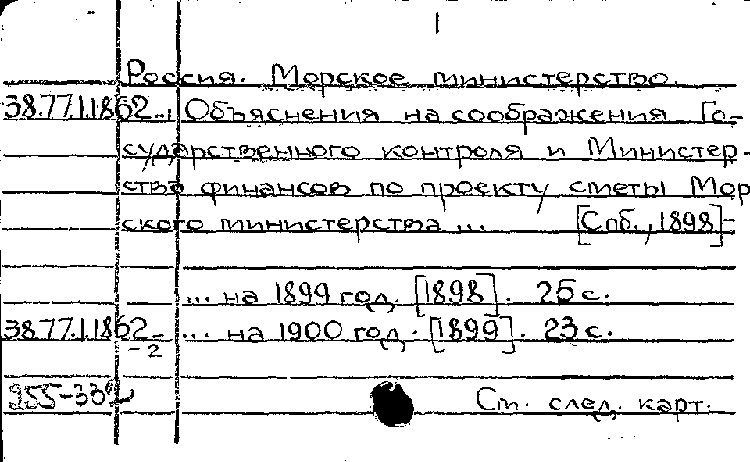 1
Россия. Морское министерство.
38.77.1.1862.. Объяснения на соображения Го-
сударственного контроля и Министер-
ства финансов по проекту сметы Мор
ского министерства ... [Спб., 1898]-
... на 1899 год. [1898]. 25 с.
38.77.1.1862- ... на 1900 год. [1899]. 23 с.
-2
См. след. карт.